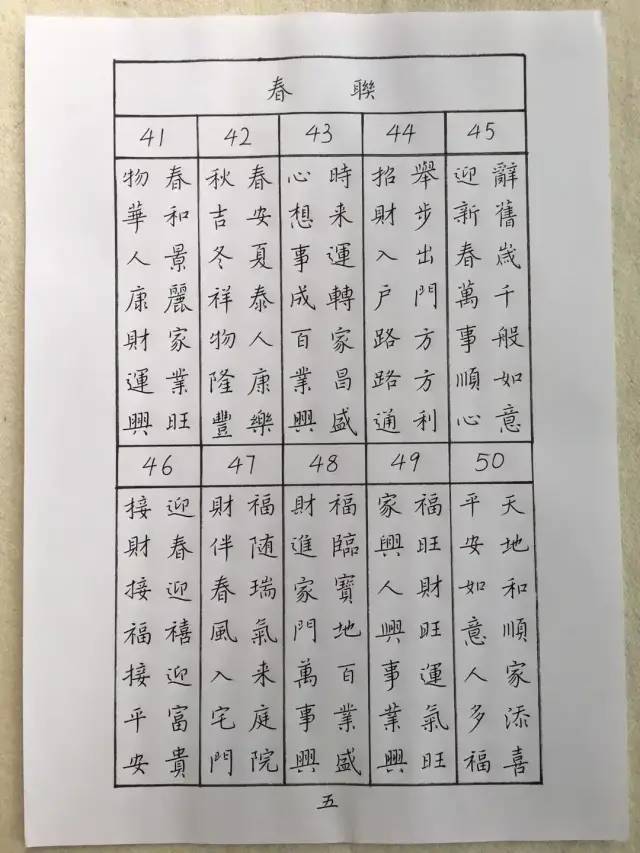 春聯
41
春和景麗家業旺
物華人康財運興
42
春安夏泰人康樂
秋吉冬祥物隆豐
43
時来運轉家昌盛
心想事成百業興
44
舉步出門方方利
招財入戶路路通
45
辭舊歲千般如意
迎新春萬事順心
46
迎春迎禧迎富貴
接財接福接平安
47
福随瑞氣来庭院
財伴春風入宅門
48
福臨寶地百業盛
財進家門萬事興
49
福旺財旺運氣旺
家興人興事業興
50
天地和順家添喜
平安如意人多福
五